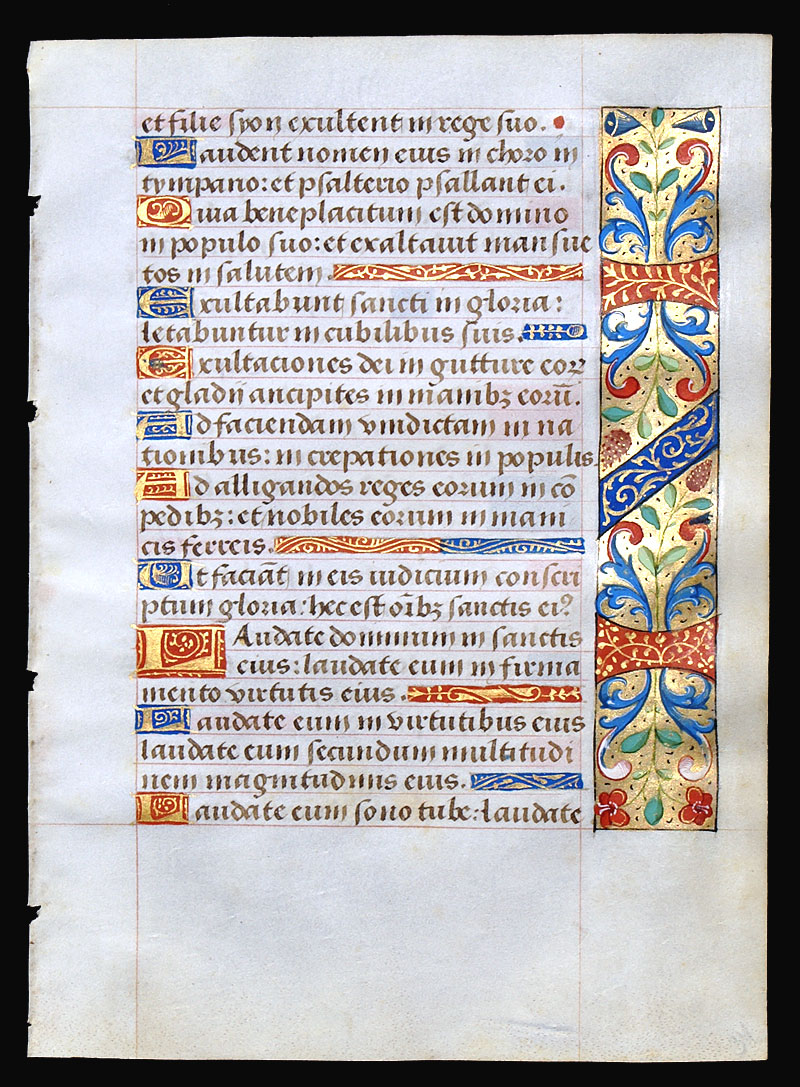 et filie syon exultent in rege suo.
Laudent nomen eius in choro in
tympano: et psalterio psallant ei.
Quia beneplacitum est domino
in populo suo: et exaltavit mansue
tos in salutem.
Exultabunt sancti in gloria:
letabuntur in cubilibus suis.
Exultaciones dei in gutture eorꝝ
et gladij ancipites in manibꝫ eorū.
Ad faciendam vindictam in na
tionibus: increpationes in populis.
Ad alligandos reges eorum in cō
pedibꝫ: et nobiles eorum in mani
cis ferreis.
Et faciāt in eis iudicium conscri
ptum gloria: hec est oībꝫ sanctis eiꝰ
LAudate dominum in sanctis
eius: laudate eum in firma
mento virtutis eius.
Laudate eum in virtutibus eius
laudate eum secundum multitudi
nem magnitudinis eius.
Laudate eum sono tube: laudate